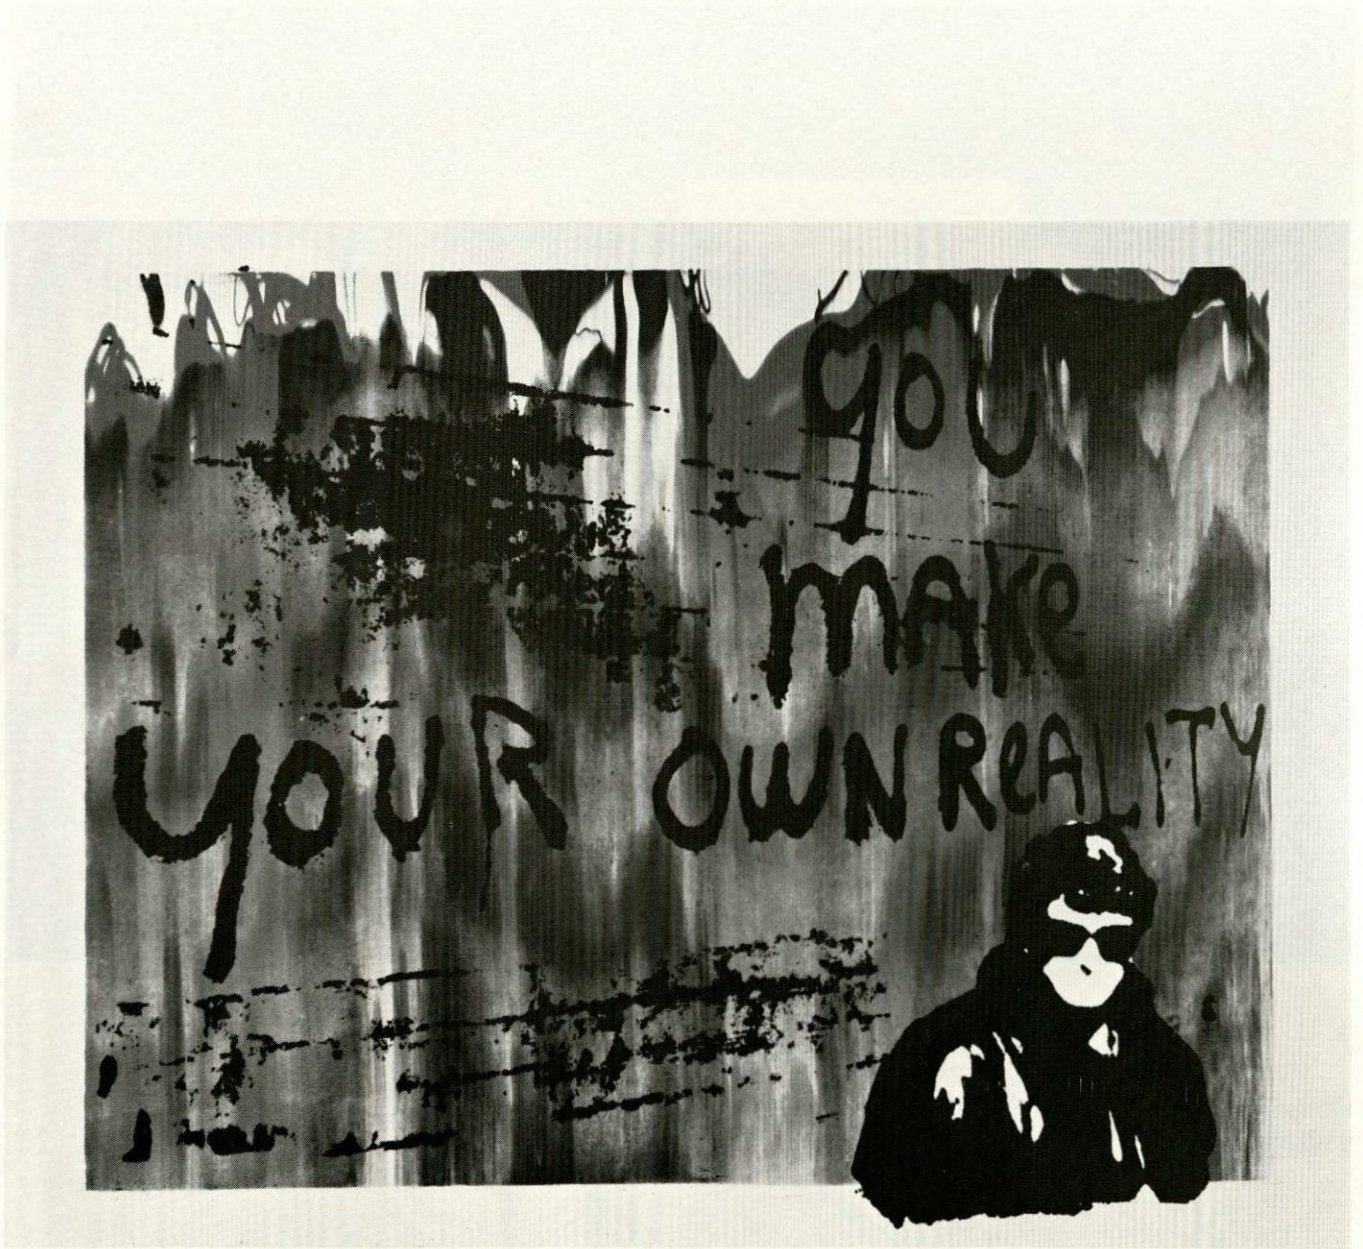 you
make
YOUR OWN ReALITY